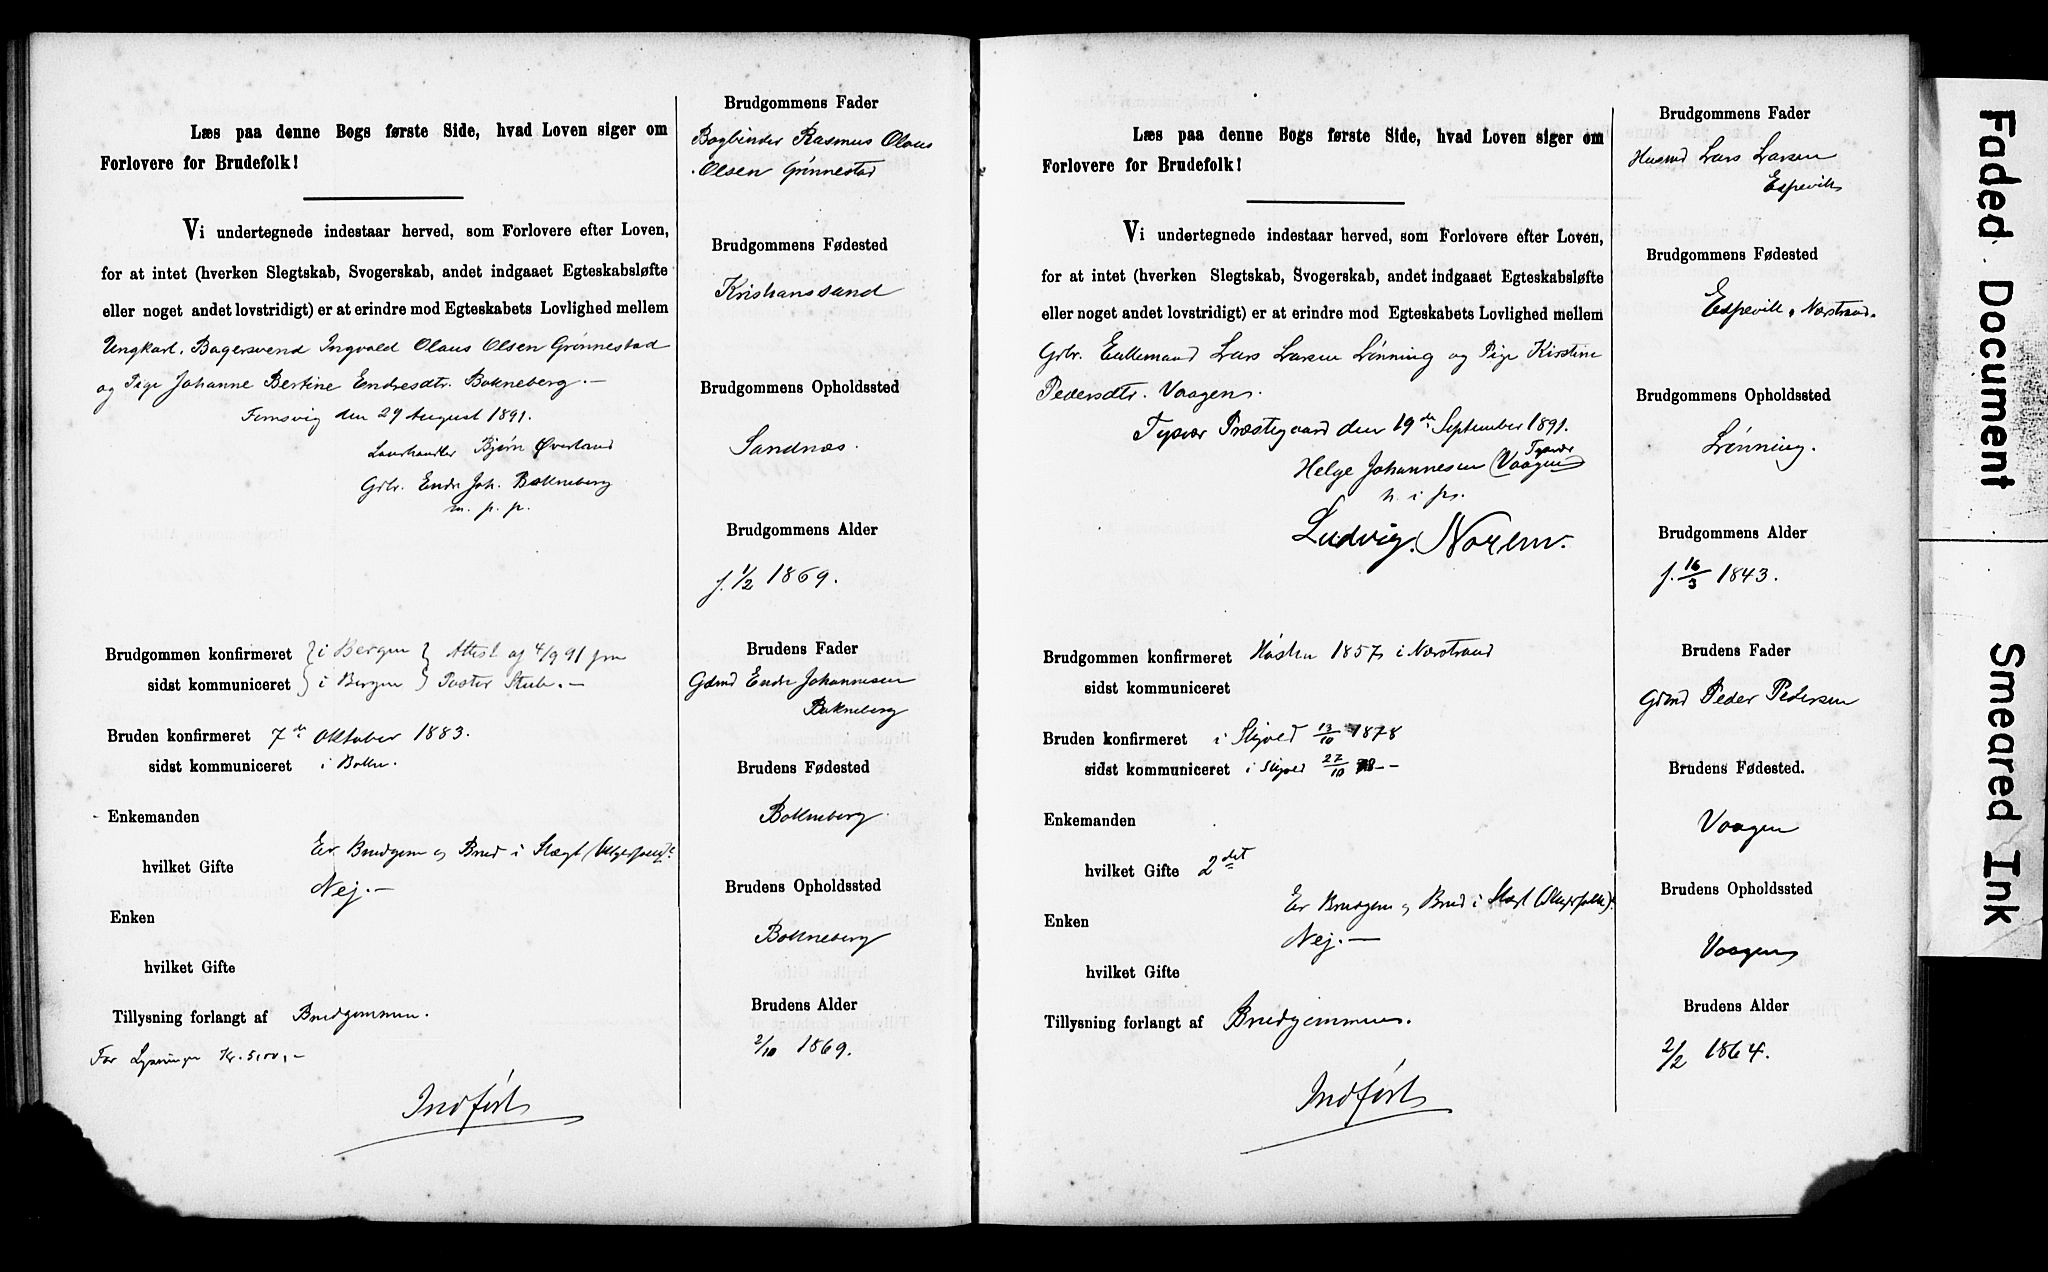 Læs paa denne Bogs første Side, hvad Loven siger om
Forlovere for Brudefolk!
Vi undertegnede indestaar herved, som Forlovere efter Loven,
for at intet (hverken Slegtskab, Svogerskab, andet indgaaet Egteskabsløfte
eller noget andet lovstridigt) er at erindre mod Egteskabets Lovlighed mellem
Ungkarl, Bagersvend Ingvald Olaus Olsen Grønnestad
og Pige Johanne Bertine Endresdtr. Bokneberg.—
den 29 August 1891.
Bjørn Øverland
Gbr. Endre Joh. Bokneberg
m. p. p.
Brudgommen konfirmeret i Bergen } Attest af 4/9 91 fra
sidst kommuniceret i Bergen } Pastor Stub.—
Bruden konfirmeret 7de Oktober 1883.
sidst kommuniceret i Bokn.
Enkemanden
Er Brudgom og Brud i Slægt
hvilket Gifte
Nej.—
Enken
hvilket Gifte
Tillysning forlangt af Brudgommen.
For Lysninger Kr. 5,00,—
Indført
Brudgommens Fader
Bogbinder Rasmus Olaus
Olsen Grønnestad
Brudgommens Fødested
Kristianssand
Brudgommens Opholdssted
Sandnæs.
Brudgommens Alder
f. 1/2 1869.
Brudens Fader
Gdmd Endre Johannesen
Bokneberg
Brudens Fødested
Bokneberg.
Brudens Opholdssted
Bokneberg
Brudens Alder
2/10 1869.
Læs paa denne Bogs første Side, hvad Loven siger om
Forlovere for Brudefolk!
Vi undertegnede indestaar herved, som Forlovere efter Loven,
for at intet (hverken Slegtskab, Svogerskab, andet indgaaet Egteskabsløfte
eller noget andet lovstridigt) er at erindre mod Egteskabets Lovlighed mellem
Gbr. Enkemand Lars Larsen Lønning og Pige Kirstine
Pedersdtr. Vaagen.
Tysvær Præstegaard den 19de September 1891.
Helge Johannesen Vaagen Tysvær
Ludvig Norem.
Brudgommen konfirmeret Høsten 1857 i Nærstrand
sidst kommuniceret
Bruden konfirmeret i Skjold 13/10 1878
sidst kommuniceret i Skjold 27/10 78 - -
Enkemanden
hvilket Gifte 2det
Er Brudgom og Brud i Slægt
Enken
Nej.—
hvilket Gifte
Tillysning forlangt af Brudgommen.
Indført
Brudgommens Fader
Husmd Lars Larsen
Espevik
Brudgommens Fødested
Espevik, Nærstrand.
Brudgommens Opholdssted
Lønning.
Brudgommens Alder
f. 16/3 1843.
Brudens Fader
Gdmd Peder Pedersen
Brudens Fødested.
Vaagen
Brudens Opholdssted
Vaagen
Brudens Alder
2/2 1864.
Faded Document
Smeared Ink